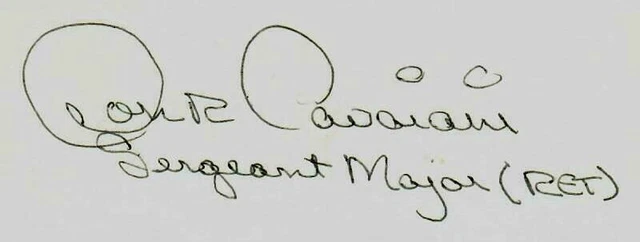 Jon R Cavaiani
Sergeant Major (RET)